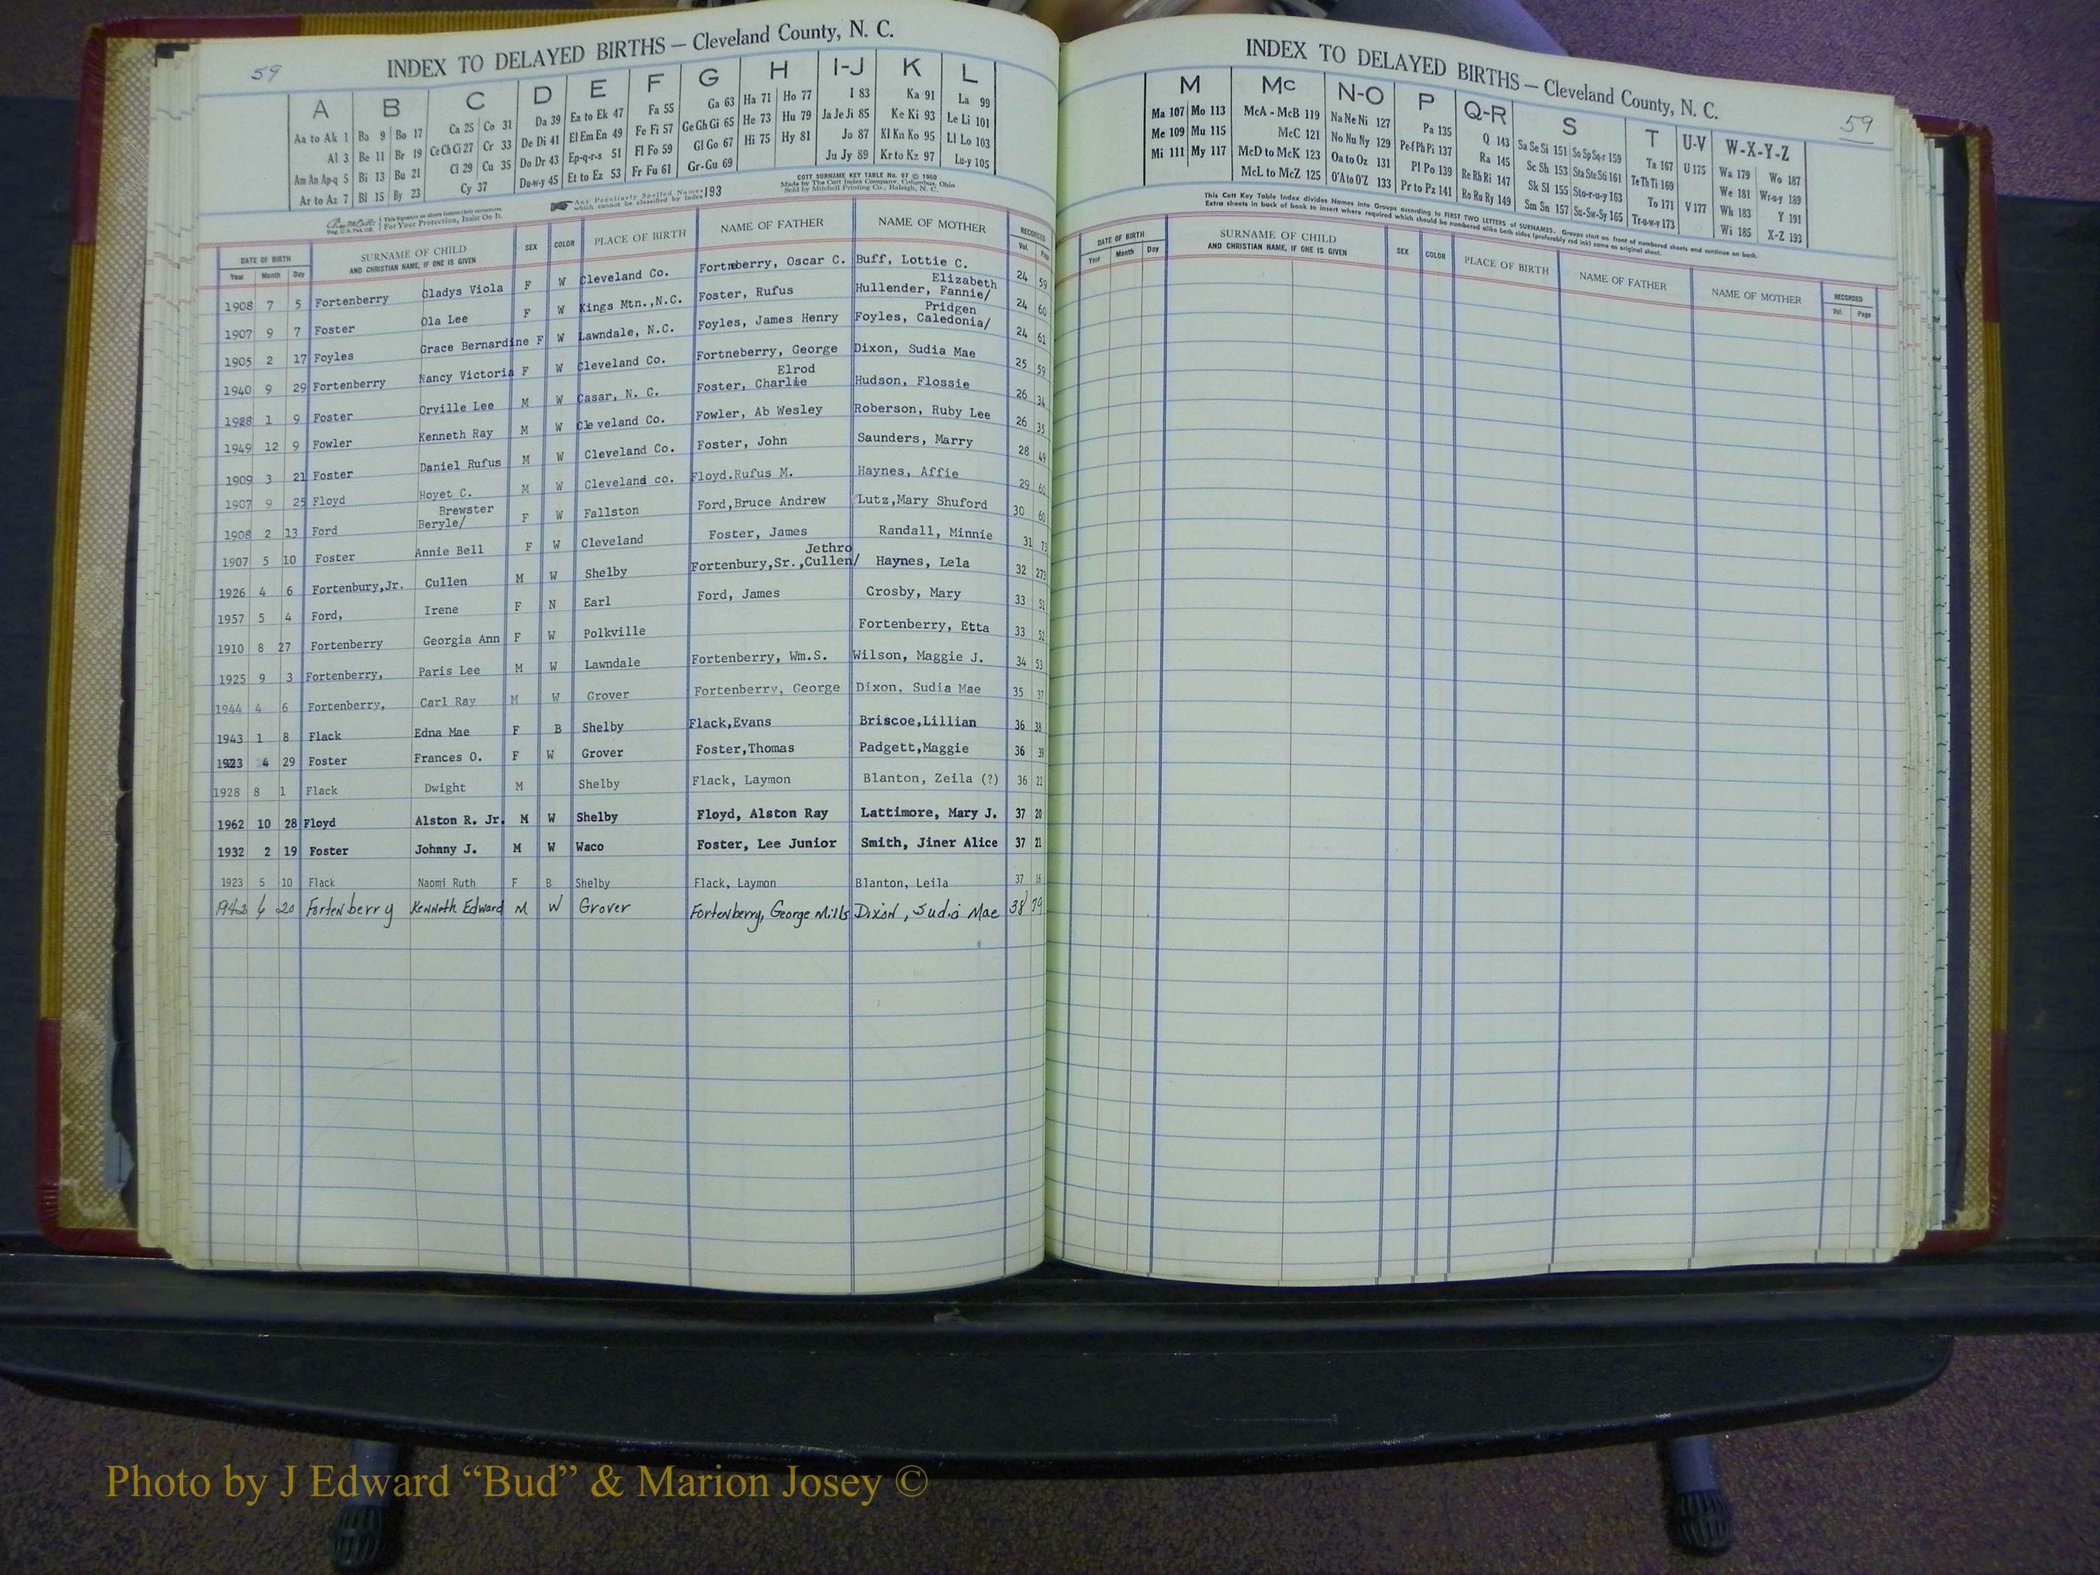 59
INDEX TO DELAYED BIRTHS — Cleveland County, N. C.
A B C D E F G H I-J K L
Aa to Ak 1 Ba 9 Bo 17 Ca 25 Co 31 Da 39 Ea to Ek 47 Fa 55 Ga 63 Ha 71 Ho 77 I 83 Ka 91 La 99
Al 3 Be 11 Br 19 Ce Ch Ci 27 Cr 33 De Di 41 El Em En 49 Fe Fi 57 Ge Gh Gi 65 He 73 Hu 79 Ja Je Ji 85 Ke Ki 93 Le Li 101
Am An Ap-q 5 Bi 13 Bu 21 Cl 29 Cu 35 Do Dr 43 Ep-q-r-s 51 Fl Fo 59 Gl Go 67 Hi 75 Hy 81 Jo 87 Kl Kn Ko 95 Ll Lo 103
Ar to Az 7 Bl 15 By 23 Cy 37 Du-w-y 45 Et to Ez 53 Fr Fu 61 Gr-Gu 69 Ju Jy 89 Kr to Kz 97 Lu-y 105
This Signature on sheets insures their correctness.
For Your Protection, Insist On It.
Any Peculiarly Spelled Names
which cannot be classified by Index 193
COTT SURNAME KEY TABLE No. 97 © 1960
Made by The Cott Index Company, Columbus, Ohio
Sold by Mitchell Printing Co., Raleigh, N. C.
DATE OF BIRTH SURNAME OF CHILD AND CHRISTIAN NAME, IF ONE IS GIVEN SEX COLOR PLACE OF BIRTH NAME OF FATHER NAME OF MOTHER RECORDED
Year Month Day Vol. Page
1908 7 5 Fortenberry Gladys Viola F W Cleveland Co. Fortneberry, Oscar C. Buff, Lottie C. 24 59
1907 9 7 Foster Ola Lee F W Kings Mtn.,N.C. Foster, Rufus Hullender, Fannie/ Elizabeth 24 60
1905 2 17 Foyles Grace Bernardine F W Lawndale, N.C. Foyles, James Henry Foyles, Caledonia/ Pridgen 24 61
1940 9 29 Fortenberry Nancy Victoria F W Cleveland Co. Fortneberry, George Dixon, Sudia Mae 25 59
1928 1 9 Foster Orville Lee M W Casar, N. C. Foster, Charlie Elrod Hudson, Flossie 26 34
1949 12 9 Fowler Kenneth Ray M W Cleveland Co. Fowler, Ab Wesley Roberson, Ruby Lee 26 35
1909 3 21 Foster Daniel Rufus M W Cleveland Co. Foster, John Saunders, Marry 28 49
1907 9 25 Floyd Hoyet C. M W Cleveland co. Floyd.Rufus M. Haynes, Affie 29 60
1908 2 13 Ford Beryle/ Brewster F W Fallston Ford,Bruce Andrew Lutz,Mary Shuford 30 60
1907 5 10 Foster Annie Bell F W Cleveland Foster, James Randall, Minnie 31
1926 4 6 Fortenbury,Jr. Cullen M W Shelby Fortenbury,Sr.,Cullen/ Jethro Haynes, Lela 32 273
1957 5 4 Ford, Irene F N Earl Ford, James Crosby, Mary 33 51
1910 8 27 Fortenberry Georgia Ann F W Polkville Fortenberry, Etta 33 52
1925 9 3 Fortenberry, Paris Lee M W Lawndale Fortenberry, Wm.S. Wilson, Maggie J. 34 53
1944 4 6 Fortenberry, Carl Ray M W Grover Fortenberry, George Dixon, Sudia Mae 35 37
1943 1 8 Flack Edna Mae F B Shelby Flack,Evans Briscoe,Lillian 36 38
1923 4 29 Foster Frances O. F W Grover Foster,Thomas Padgett,Maggie 36 39
1928 8 1 Flack Dwight M Shelby Flack, Laymon Blanton, Zeila (?) 36 22
1962 10 28 Floyd Alston R. Jr. M W Shelby Floyd, Alston Ray Lattimore, Mary J. 37 20
1932 2 19 Foster Johnny J. M W Waco Foster, Lee Junior Smith, Jiner Alice 37 21
1923 5 10 Flack Naomi Ruth F B Shelby Flack, Laymon Blanton, Leila 37 16
1942 6 20 Fortenberry Kenneth Edward M W Grover Fortenberry, George Mills Dixon, Sudia Mae 38 79
INDEX TO DELAYED BIRTHS — Cleveland County, N. C.
59
M Mc N-O P Q-R S T U-V W-X-Y-Z
Ma 107 Mo 113 McA - McB 119 Na Ne Ni 127 Pa 135 Q 143 Sa Se Si 151 So Sp Sq-r 159 Ta 167 U 175 Wa 179 Wo 187
Me 109 Mu 115 McC 121 No Nu Ny 129 Pe-f Ph Pi 137 Ra 145 Sc Sh 153 Sta Ste Sti 161 Te Th Ti 169 We 181 Wr-u-y 189
Mi 111 My 117 McD to McK 123 Oa to Oz 131 Pl Po 139 Re Rh Ri 147 Sk Sl 155 Sto-r-u-y 163 To 171 V 177 Wh 183 Y 191
McL to McZ 125 O'A to O'Z 133 Pr to Pz 141 Ro Ru Ry 149 Sm Sn 157 Su-Sw-Sy 165 Tr-u-w-y 173 Wi 185 X-Z 193
This Cott Key Table Index divides Names into Groups according to FIRST TWO LETTERS of SURNAMES. Groups start on front of numbered sheets and continue on back.
Extra sheets in back of book to insert where required which should be numbered alike both sides (preferably red ink) same as original sheet.
DATE OF BIRTH SURNAME OF CHILD AND CHRISTIAN NAME, IF ONE IS GIVEN SEX COLOR PLACE OF BIRTH NAME OF FATHER NAME OF MOTHER RECORDED
Year Month Day Vol. Page
Photo by J Edward “Bud” & Marion Josey ©